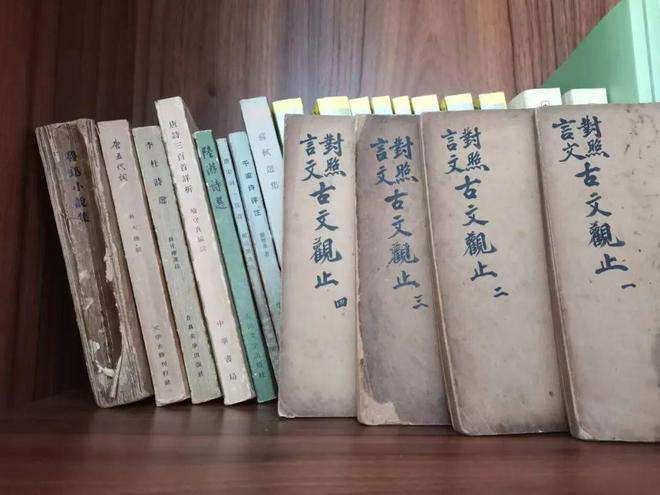 魯迅小說集
唐五代詞
李杜詩選
唐詩三百首詳析
喻守真編註
中華書局
陸游詩選
千家詩評注
蘇軾選集
言文對照
古文觀止 四
言文對照
古文觀止 三
言文對照
古文觀止 二
言文對照
古文觀止 一